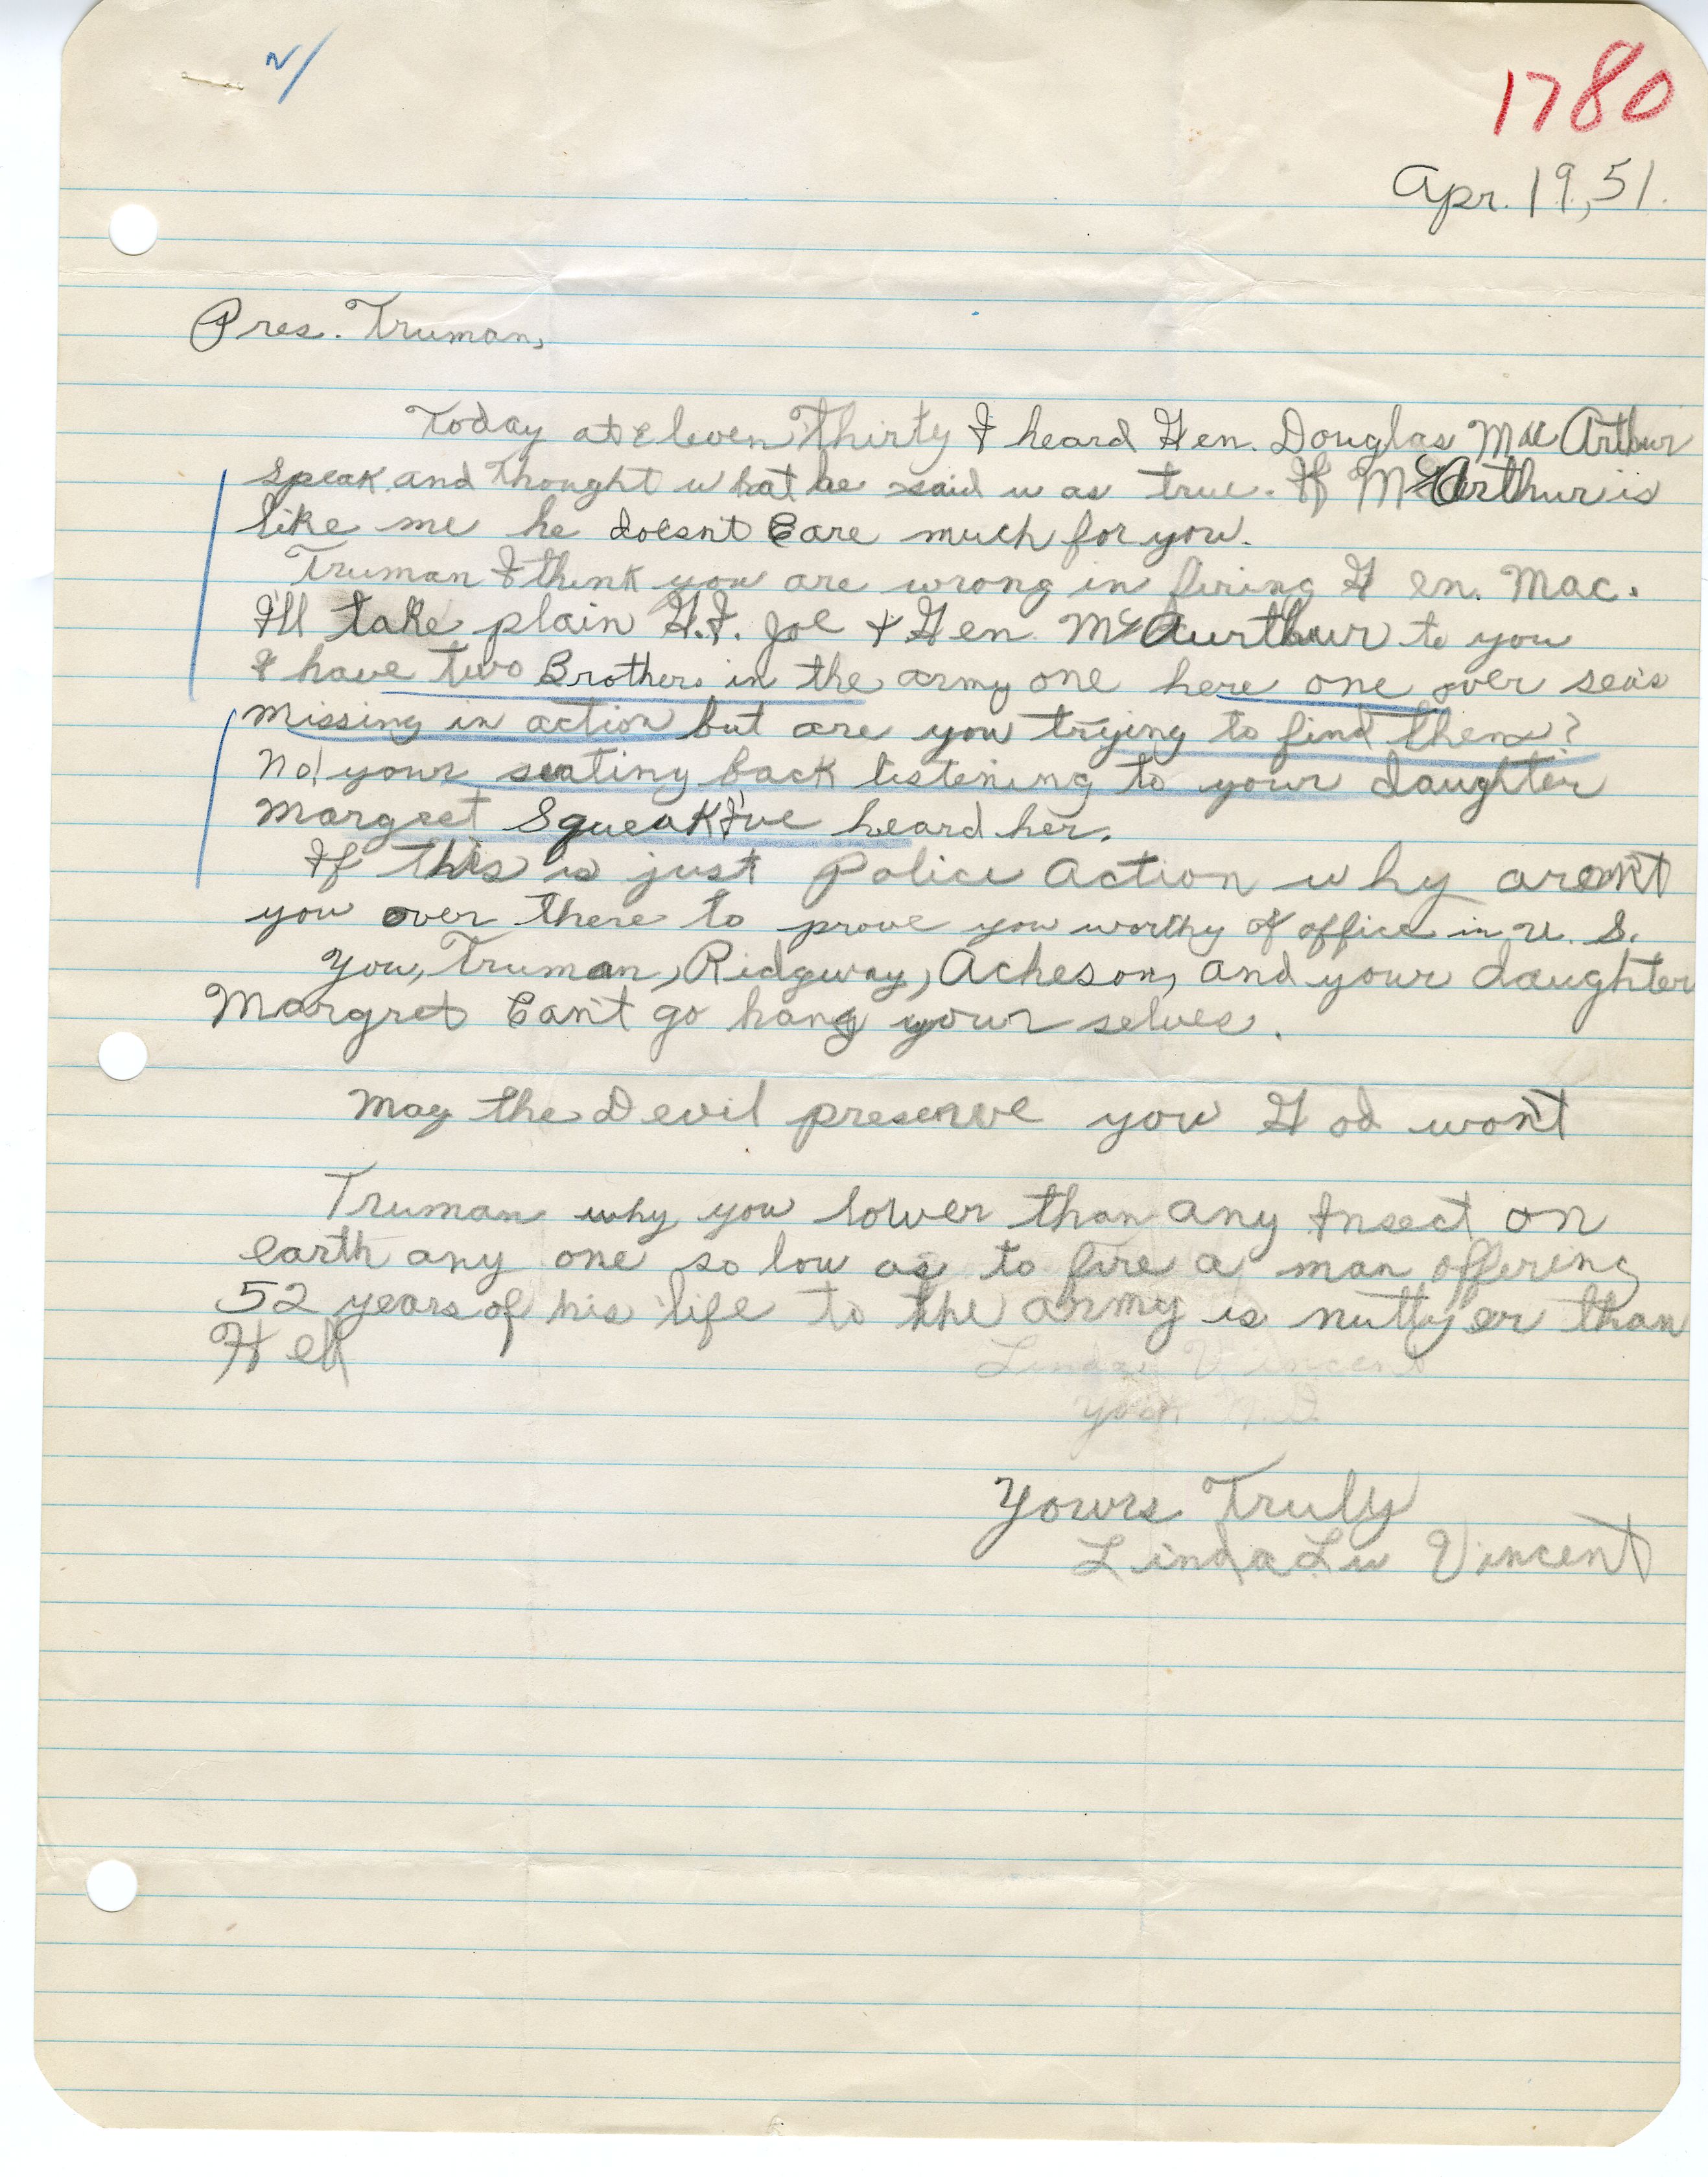 1780
Apr. 19, 51.
Pres. Truman,
Today at eleven Thirty I heard Gen. Douglas MacArthur
speak and thought what he said was true. If McArthur is
like me he doesn't Care much for you.
Truman I think you are wrong in firing Gen. Mac.
I'll take plain G.I. Joe & Gen McAurthur to you
I have two Brothers in the army one here one over seas
missing in action but are you trying to find them?
No your seating back listening to your daughter
Margret Squeak I've heard her.
If this is just Police Action why aren't
you over there to prove you worthy of office in U. S.
You, Truman, Ridgway, Acheson, and your daughter
Margret Can't go hang your selves.
May the Devil preserve you God won't
Truman why you lower than any Insect on
earth any one so low as to fire a man offering
52 years of his life to the army is nuttyer than
Hell
Vincent
York N.D.
Yours Truly
Linda Lu Vincent